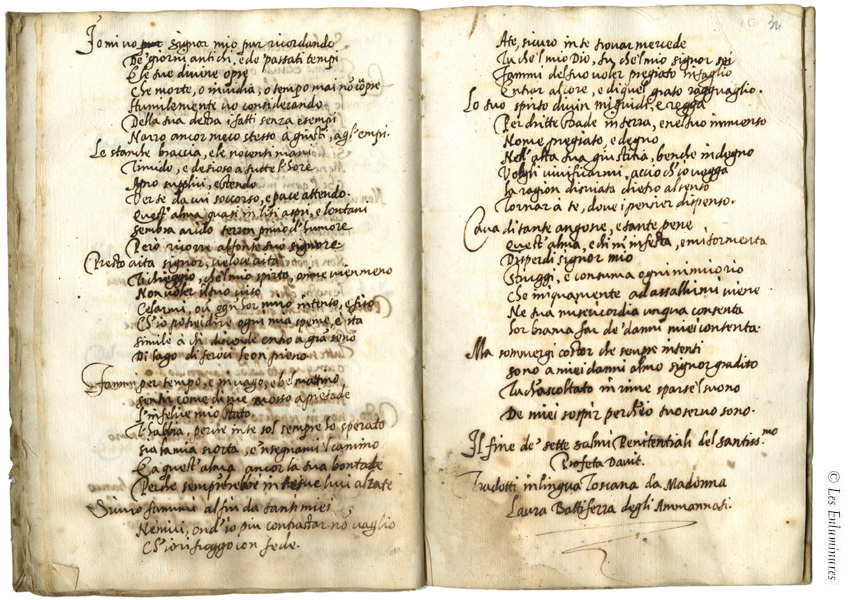 Io mi vo pur signor mio pur ricordando
De' giorni antichi, e de passati tempi
E le tue divine opre
Che morte, o invidia, o tempo mai nō copre
Humilmente vo considerando
Della tua destra i fatti senza esempi
Narro ancor meco stesso a giusti, a gl'empi.
Le stanche braccia, e le nocenti mani
Timido, e desioso a tutte l'hore
Apro supplice, e stendo
Ver te da cui soccorso, e pace attendo.
Quest'alma quasi in lidi aspri, e lontani
Sembra arido terren privo d'humore
Però ricorre al fonte suo signore
Presto aita signor, veloce aita
Ti chieggio, che'l mio spirto, oime vien meno
Non voler il tuo viso
Celarmi, ov' ogn'hor miro intento, e fiso
Ch'io potrei dire ogni mia speme, e ita
Simile à chi discende entro a grā seno
Di lago di feroci pieno
Fammi per tempo, e pi vago, e bel mattino
Sentir come di me mosso a pietade
L'infelice mio stato
T'habbia, perche in te sol sempre ho sperato
Sia la mia scorta, e insegnami'l camino
E a quest'alma ancor la tua bontade
Perche sempre hebbe in te sue luci alzate
Divino fammi al fin da tanti miei
Nemici, ond'io piu contrastar nō vaglio
Ch'io rifuggo con fede.
34
A te, sicuro in te trovar mercede
Tu che'l mio Dio, tu che'l mio signor sei
Fammi del tuo voler pregiato intaglio
Entrar al core, e di quel grato ragguaglio.
Lo tuo spirto divin mi guidi, e regga
Per dritte strade in terra, e nel tuo immenso
Nome pregiato, e degno
Nell'alta tua giustitia, benche indegno
Volgli vivificarmi, acciò ch'io vegga
La ragion disviata dietro al senso
Tornar à te, dove i pensier dispenso.
Cava di tante angosce, e tante pene
Quest'alma, e chi m'infesta, e mi tormenta
Disperdi signor mio
Struggi, e consuma ogni nimico rio
Che iniquamente ad assalirmi viene
Ne tua misericordia unqua consenta
Lor brama far de' danni miei contenta.
Ma sommergi costor che sempre intenti
Sono a miei danni almo signor gradito
Tu ch'ascoltato in rime sparse'l suono
De miei sospir perch'io tuo servo sono.
Il fine de' sette salmi Penitentiali del santiss.mo
Profeta Davit.
Tradotti in lingua Toscana da Madonna
Laura Battiferra degli Ammannati.
© Les Enluminures